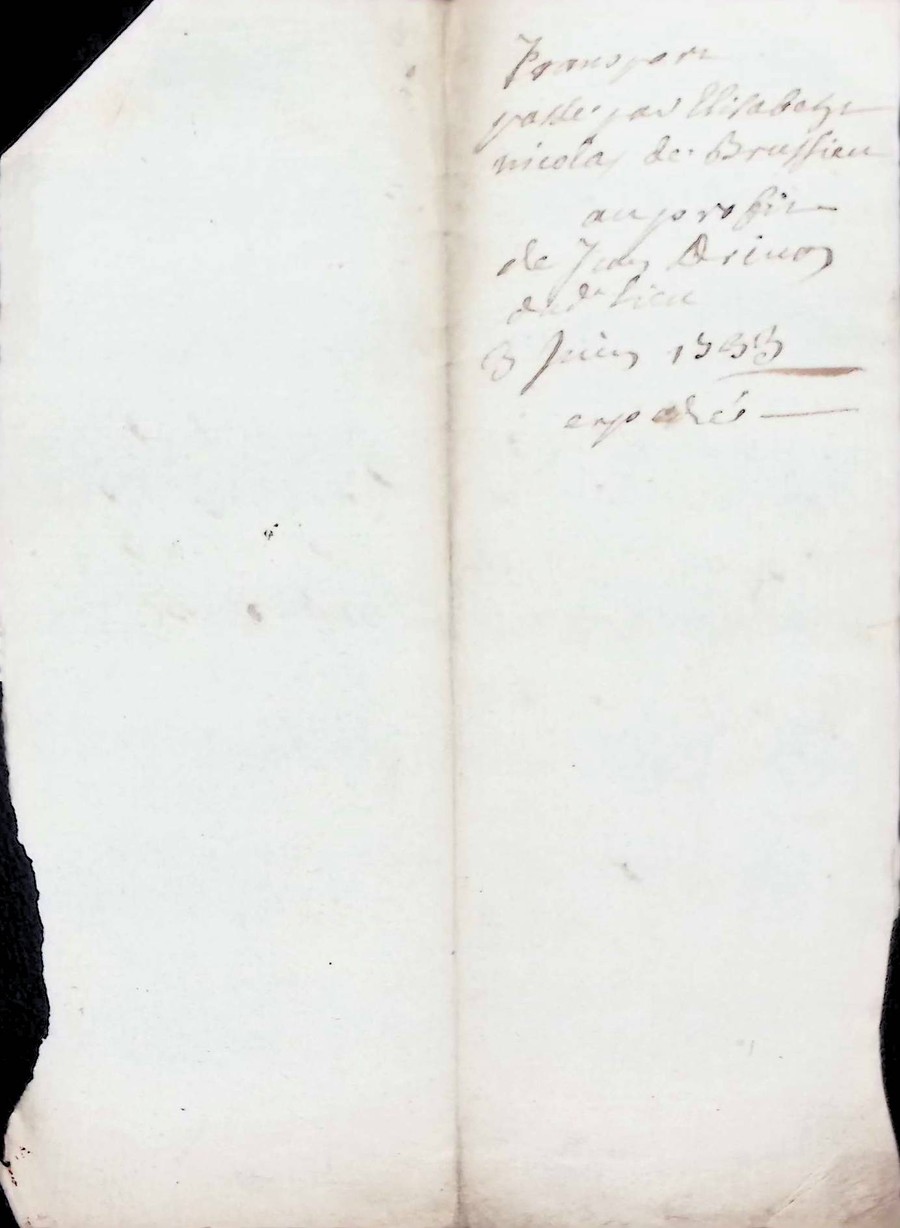 Transport
passé par Elisabeth
nicolas de Brussieu
au profit
de Jean Drivon
dud. lieu
3 Juin
expedié